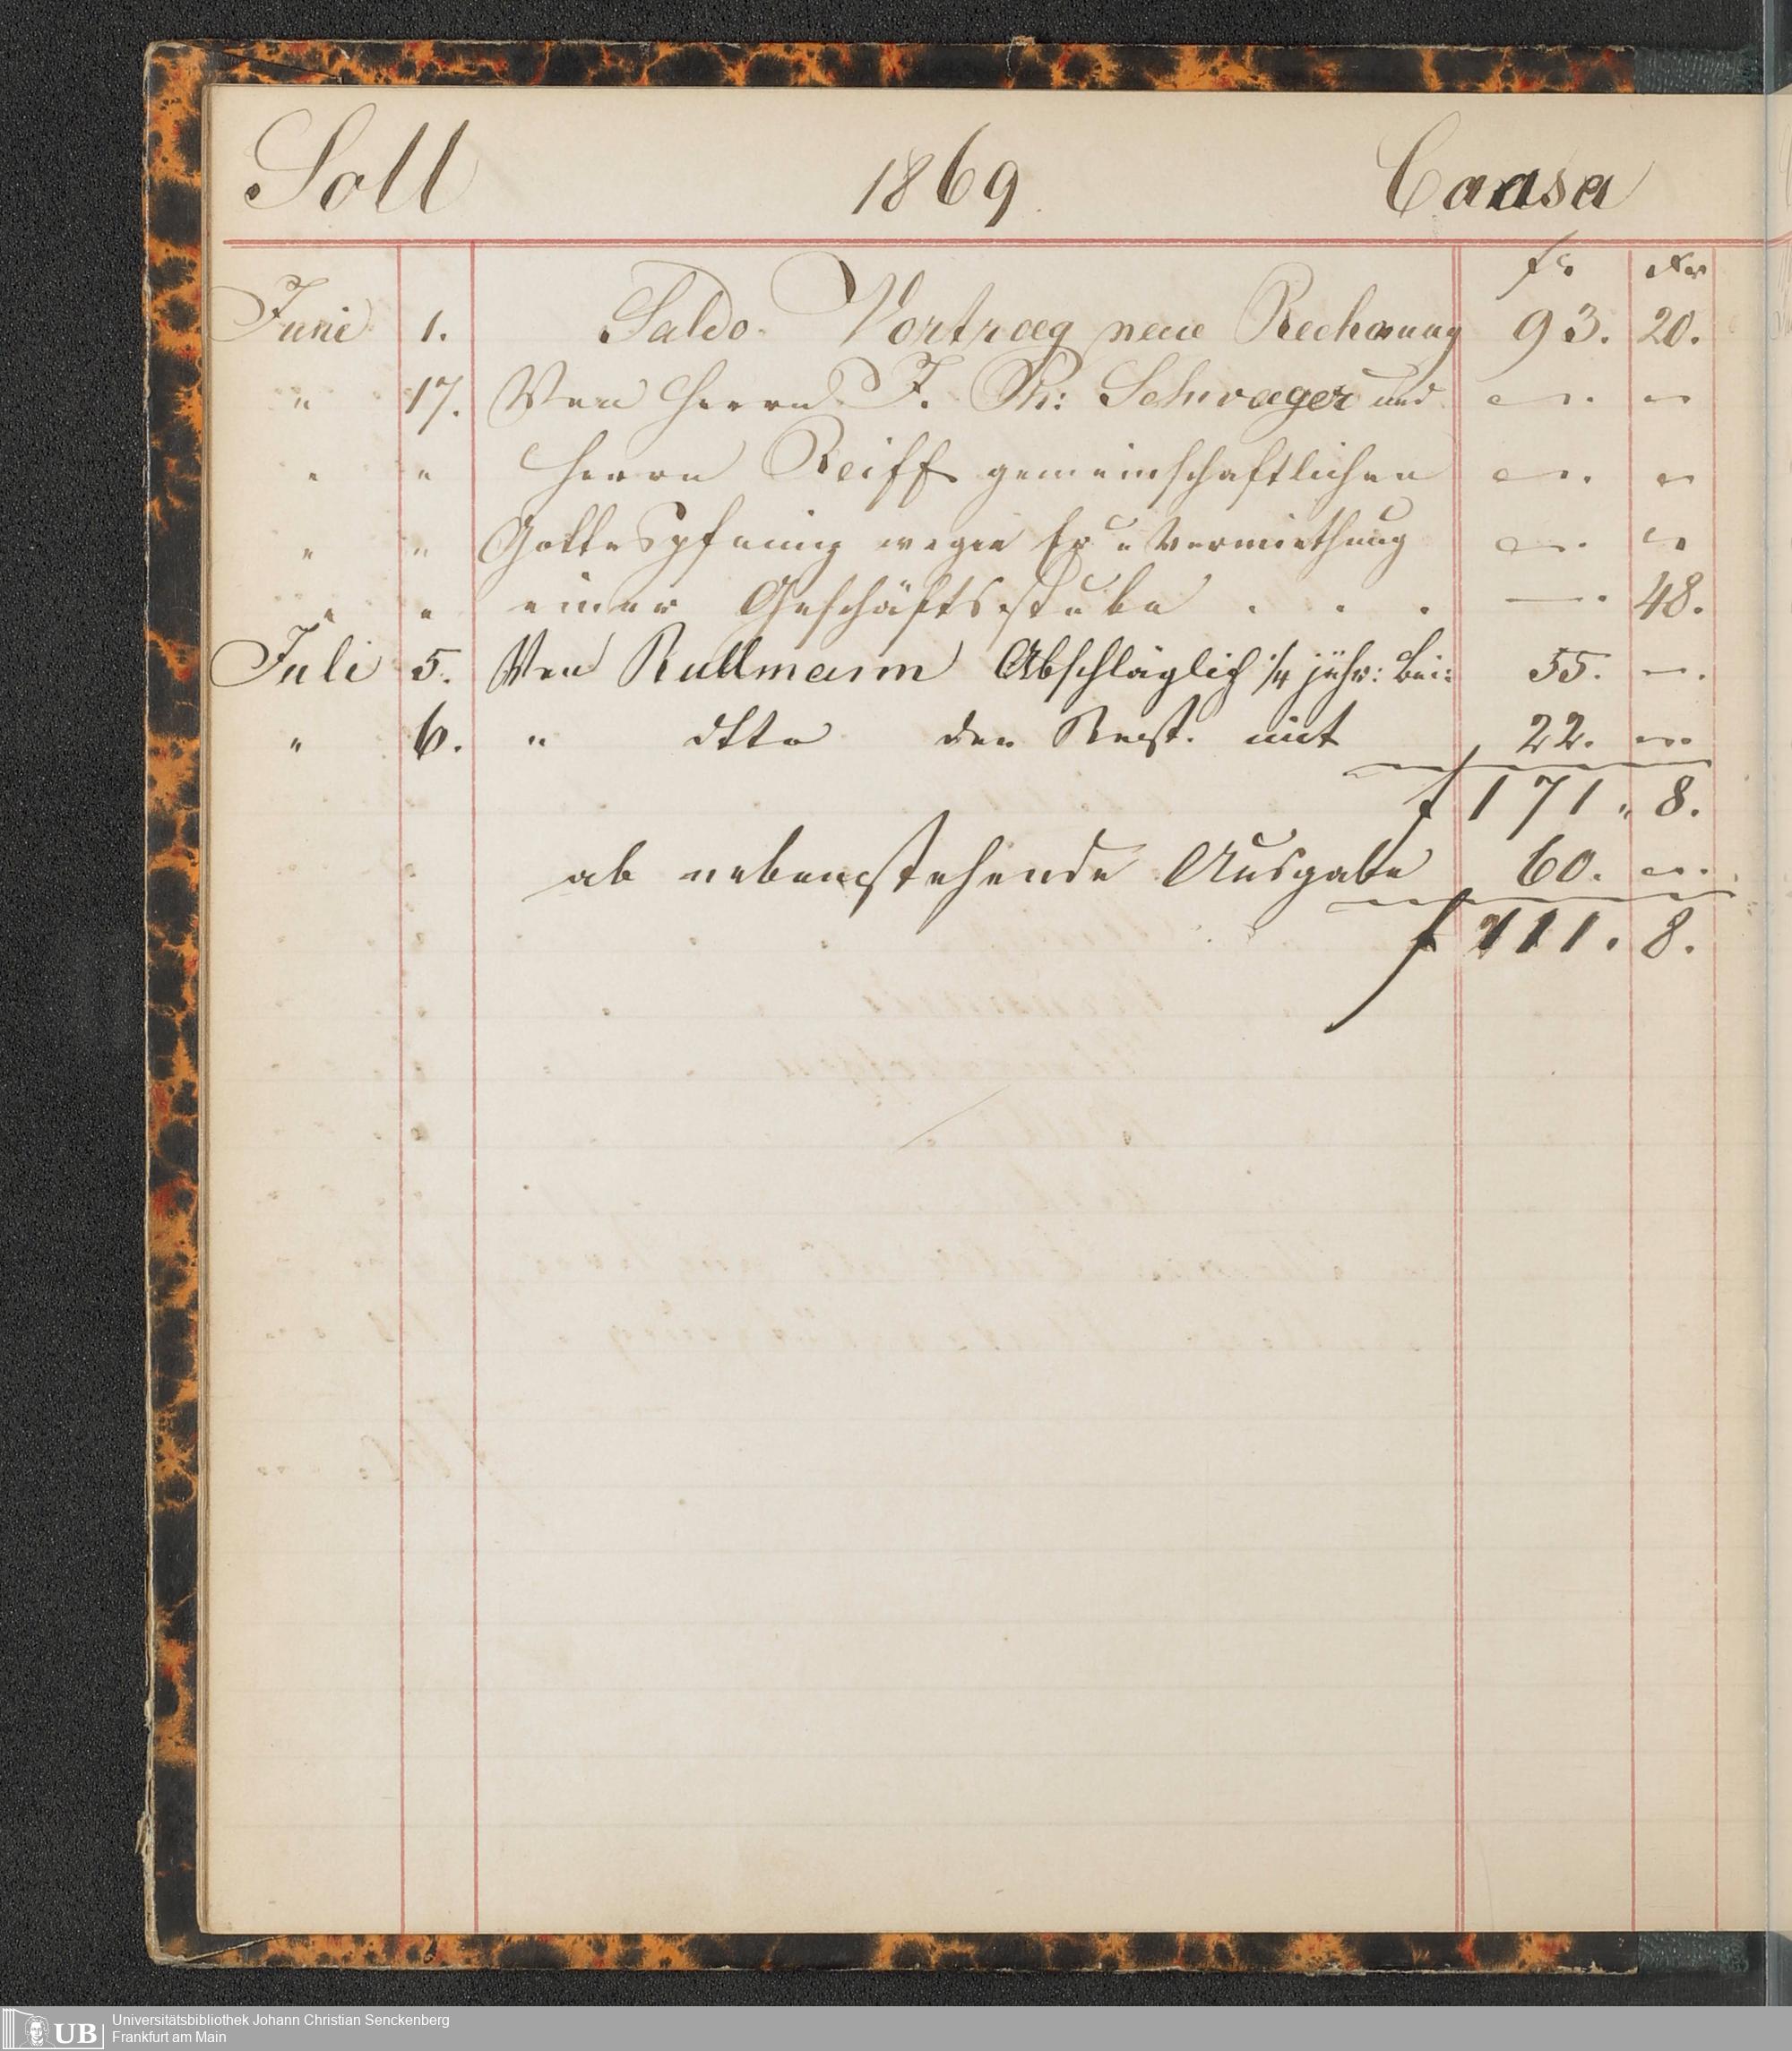 Soll 1869 Caasa
fr. Kr
Juni 1. Saldo Vortrag neue Rechnung 93. 20.
" 17. Von Herrn J. Ph: Schwager und — . —
" " Herrn Reiff gemeinschaftlichen — . —
" " Gottespfening wegen Vermiethung — . —
" " einer Geschäftsstube . . . — . 48.
Juli 5. Von Rullmann Abschläglich 1/4 jähr: Bei: 55. — .
" 6. " dtto den Rest mit 22. — .
f 171 " 8.
ab nebenstehende Ausgabe 60. — .
f 111. 8.
UB Universitätsbibliothek Johann Christian Senckenberg
Frankfurt am Main